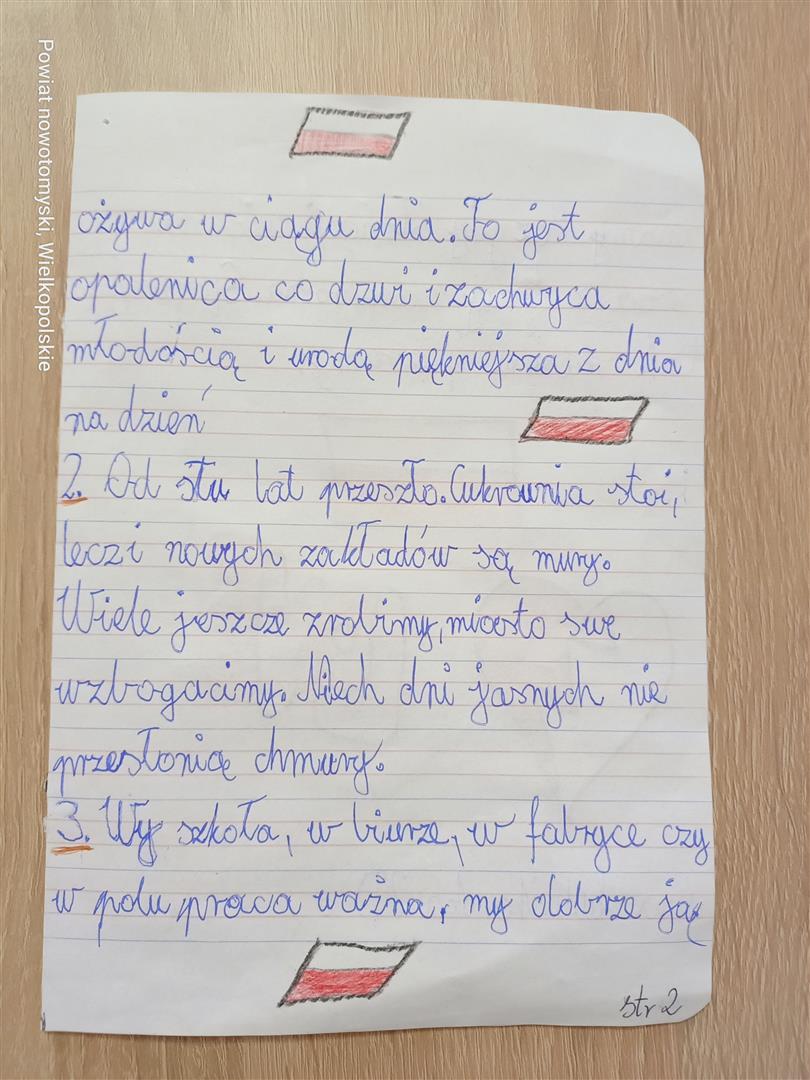 Powiat nowotomyski, Wielkopolskie
ożywa w ciągu dnia. To jest
opalenica co dziwi i zachwyca
młodością i urodą piękniejsza z dnia
na dzień
2. Od stu lat przeszło. Cukrownia stoi,
lecz i nowych zakładów są mury.
Wiele jeszcze zrobimy, miasto swe
wzbogacimy. Niech dni jasnych nie
przesłonią chmury.
3. Wy szkoła, w biurze, w fabryce czy
w polu praca ważna, my dobrze ją
str 2